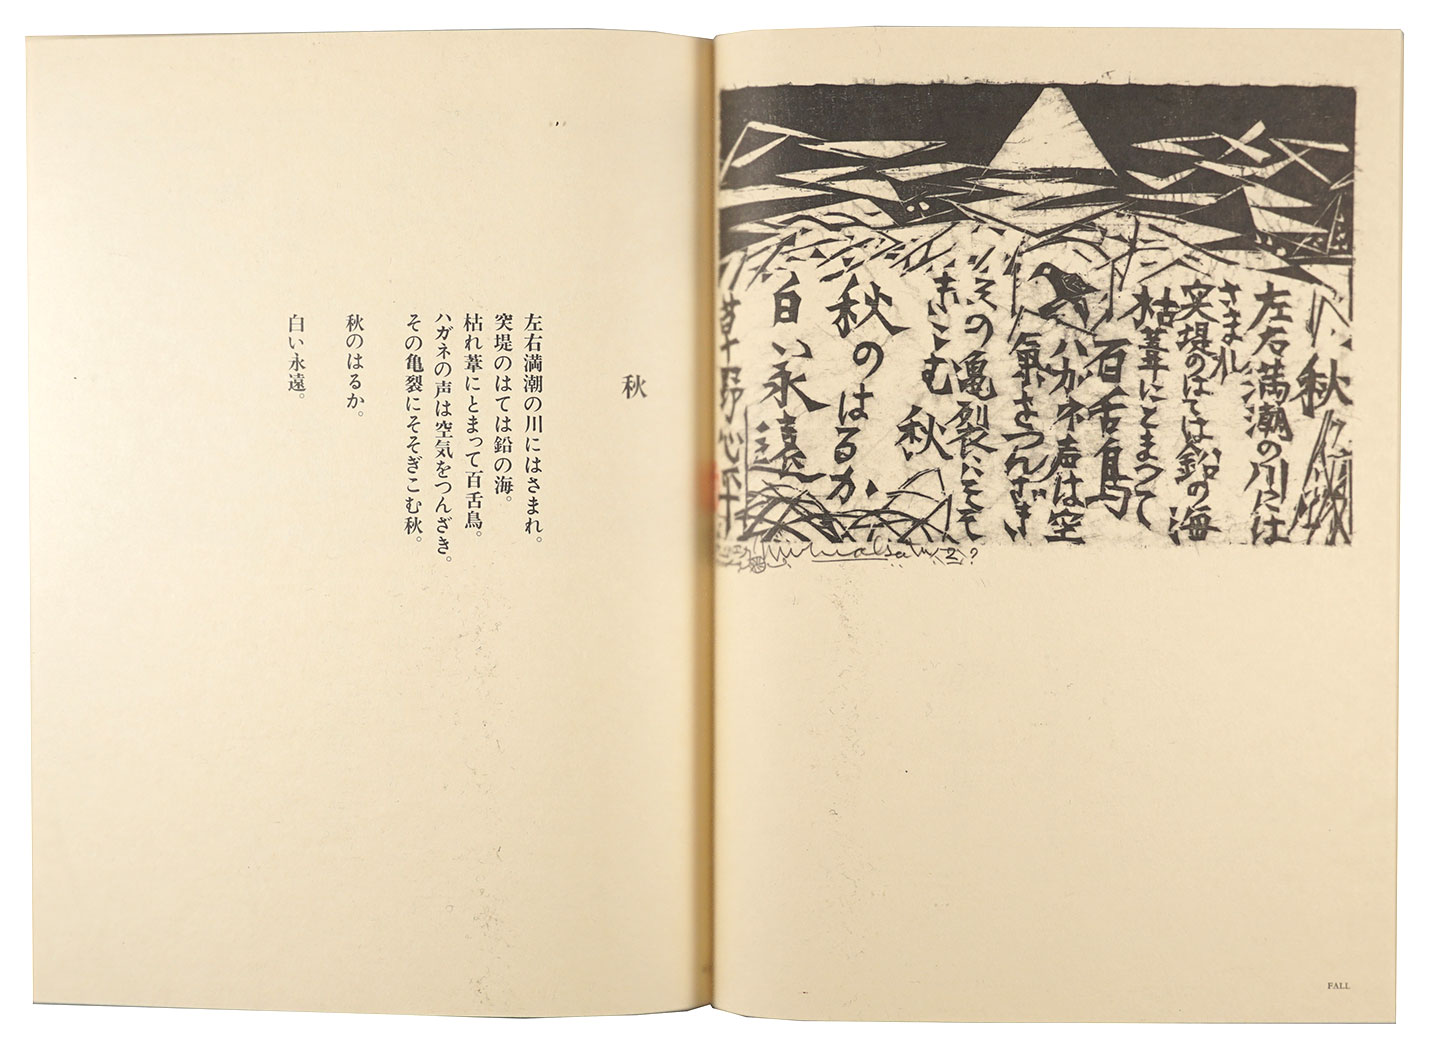 秋
左右満潮の川には
さまれ
突堤のはては鉛の海
枯葦にとまつて
百舌鳥
ハガネ声は空
氣をつんざき
その亀裂にそそ
ぎこむ 秋
秋のはるか
白い永遠
草野心平
FALL
秋
左右満潮の川にはさまれ。
突堤のはては鉛の海。
枯れ葦にとまって百舌鳥。
ハガネの声は空気をつんざき。
その亀裂にそそぎこむ秋。
秋のはるか。
白い永遠。